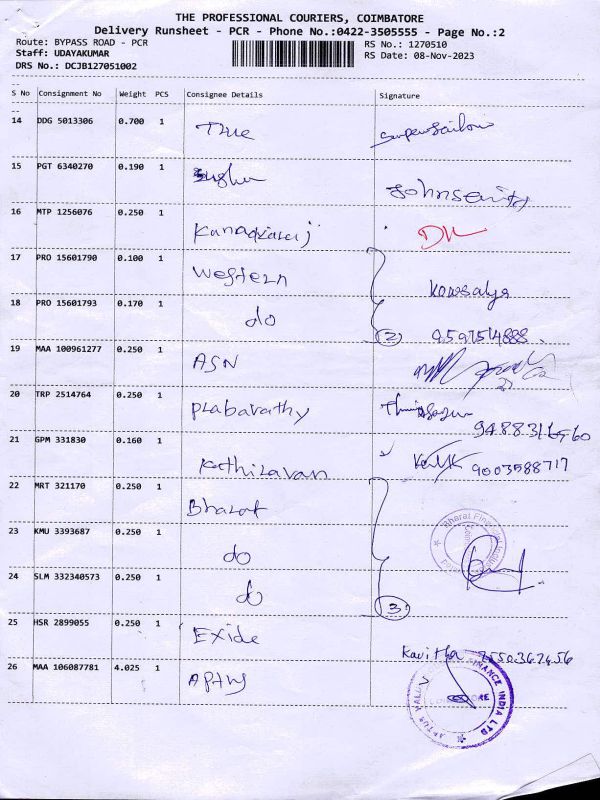 THE PROFESSIONAL COURIERS, COIMBATORE
Delivery Runsheet - PCR - Phone No.:0422-3505555 - Page No.:2
Route: BYPASS ROAD - PCR
RS No.: 1270510
Staff: UDAYAKUMAR
RS Date: 08-Nov-2023
DRS No.: DCJB127051002
S No Consignment No Weight PCS Consignee Details Signature
14 DDG 5013306 0.700 1 True
15 PGT 6340270 0.190 1
16 MTP 1256076 0.250 1 Kanagaraj
17 PRO 15601790 0.100 1 Western Kowsalya
18 PRO 15601793 0.170 1 do 2
19 MAA 100961277 0.250 1 ASN
20 TRP 2514764 0.250 1 Prabavathy
21 GPM 331830 0.160 1 Kathiravan 9003588717
22 MRT 321170 0.250 1 Bharat
23 KMU 3393687 0.250 1 do
24 SLM 332340573 0.250 1 do 3
25 HSR 2899055 0.250 1 Exide Kavitha
26 MAA 106087781 4.025 1 Aptus
FINANCE INDIA LTD